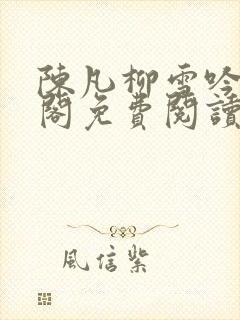 陳凡柳雪吟
閣免費閱讀
風信紫